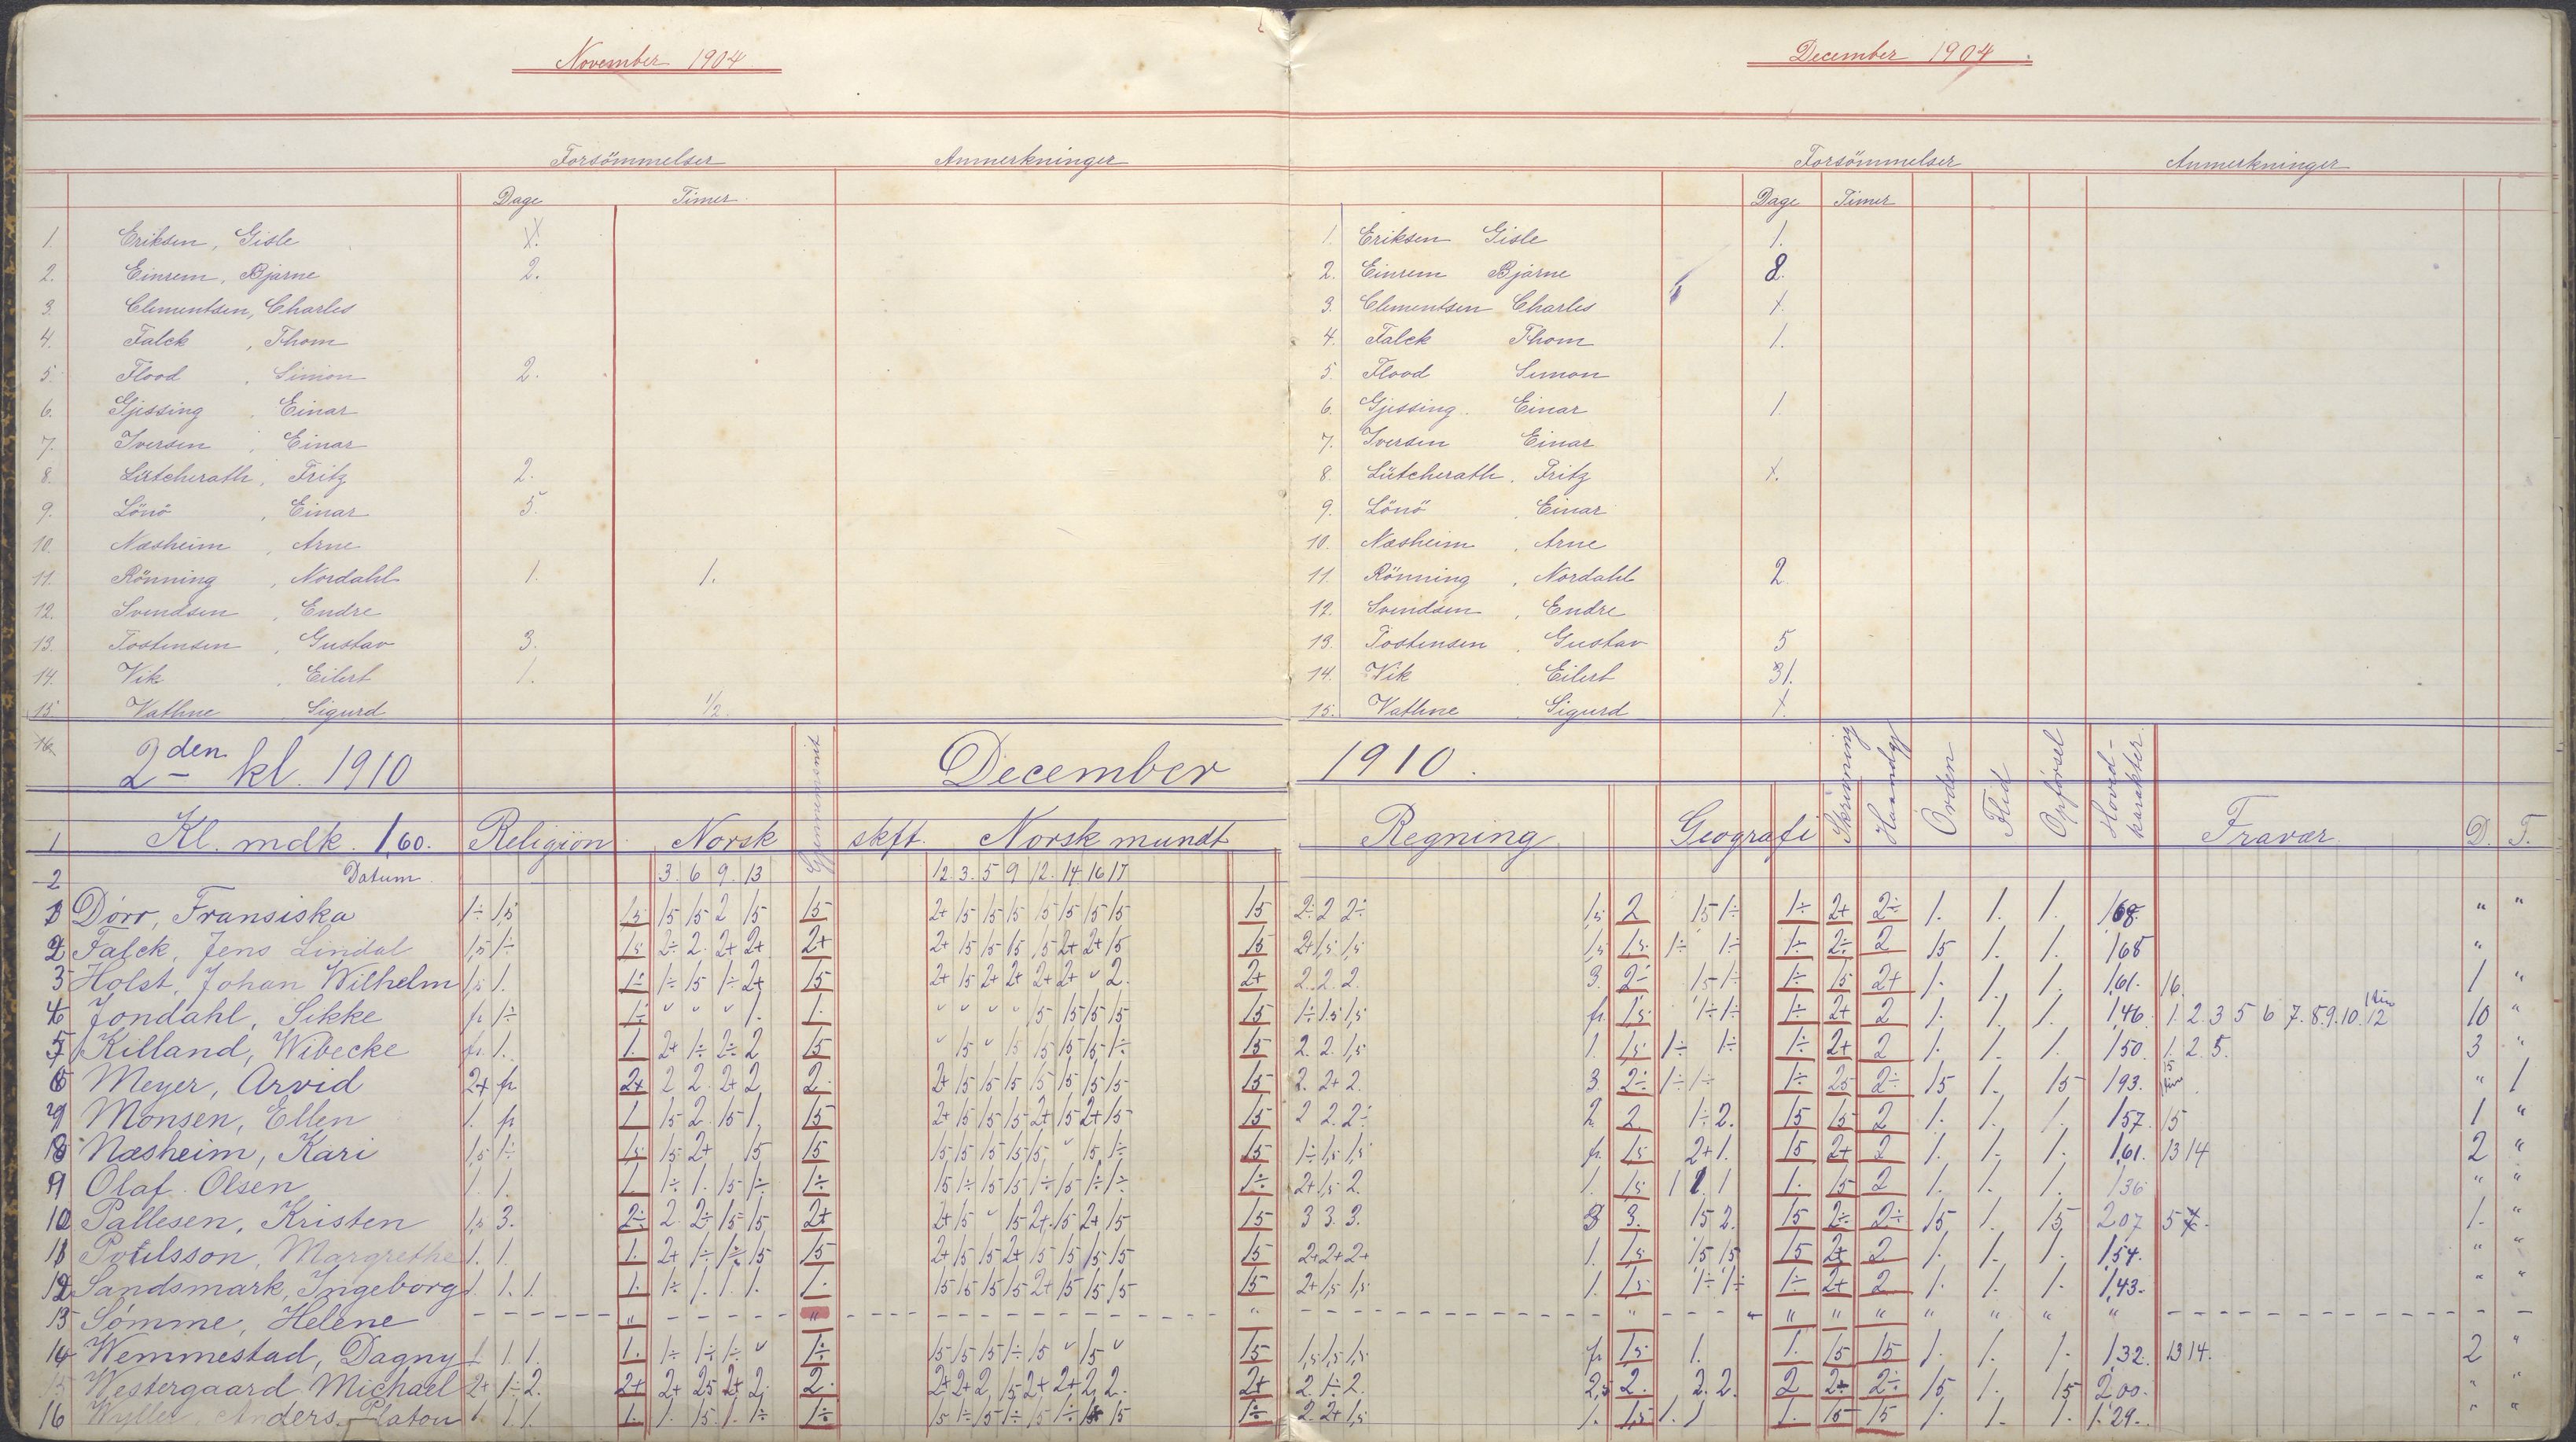 November 1904
Forsömmelser Anmerkninger
Dage Timer
1. Eriksen, Gisle X.
2. Einrem, Bjarne 2.
3. Clementsen, Charles
4. Falck, Thom
5. Flood, Simon 2.
6. Gjessing, Einar
7. Iversen, Einar
8. Lütcherath, Fritz 2.
9. Lönö, Einar 5.
10. Næsheim, Arne
11. Rönning, Nordahl 1. 1.
12. Svendsen, Endre
13. Tostensen, Gustav 3.
14. Vik, Eilert 1.
15. Vathne, Sigurd 1/2.
16.
December 1904.
Forsömmelser Anmerkninger
Dage Timer
1. Eriksen Gisle 1.
2. Einrem Bjarne 8.
3. Clementsen Charles X.
4. Falck Thom 1.
5. Flood Simon
6. Gjessing. Einar 1.
7. Iversen Einar
8. Lütcherath, Fritz X.
9. Lönö, Einar
10. Næsheim, Arne
11. Rönning, Nordahl 2.
12. Svendsen, Endre
13. Tostensen, Gustav 5
14. Vik Eilert 31.
15. Vathne, Sigurd X.
2den kl. 1910 December 1910.
1 Kl. mdk. 1,60. Religion Norsk Gjennemsnit skft. Norsk mundt Regning Geografi Skrivning Haandgj Orden Flid Opførsel Hovedkarakter Fravær D. T.
2 Datum 3. 6 9. 13 12. 3. 5 9 12. 14. 16 17
1 Dörr, Fransiska 1÷ 1,5 1,5 15 15 2 15 15 2+ 15 15 15 15 15 15 15 15 2÷ 2 2÷ 1,5 2 15 1÷ 1÷ 2+ 2÷ 1. 1. 1. 168. " "
2 Falck, Jens Lindal 1,5 1÷ 1,5 2÷ 2. 2+ 2+ 2+ 2+ 15 15 15 15 2+ 2+ 15 15 2+ 1,5 1,5 1,5 1,5 1÷ 1÷ 1÷ 2÷ 2 15 1. 1. 168 "
3 Holst, Johan Wilhelm 1,5 1. 1÷ 1÷ 15 1÷ 2+ 15 2+ 15 2+ 2+ 2+ 2+ v 2. 2+ 2. 2. 2. 3. 2÷ 15 1÷ 1÷ 15 2+ 1. 1. 1. 1,61. 16. 1 "
4 Jondahl, Sikke fr 1÷ 1÷ v v v 1. 1. v v v v 15 15 15 15 15 1÷ 1,5 1,5 fr. 1,5 1÷ 1÷ 1÷ 2+ 2 1. 1. 1. 1,46. 1. 2. 3 5 6 7. 8. 9. 10. 12 10 "
5 Killand, Wibecke fr. 1. 1. 2+ 1÷ 2÷ 2 15 v 15 v 15 15 15 15 1÷ 15 2. 2. 1,5 1. 1,5 1÷ 1÷ 1÷ 2+ 2 1. 1. 1. 150. 1. 2. 5. 3 "
6 Meyer, Arvid 2+ fr 2+ 2 2. 2+ 2 2. 2+ 15 15 15 15 15 15 15 15 2. 2+ 2. 3. 2÷ 1÷ 1÷ 1÷ 25 2÷ 15 1. 15 193. " 1
7 Monsen, Ellen 1. fr 1 15 2. 15 1. 15 2+ 15 15 15 2+ 15 2+ 15 15 2 2. 2÷ 2 2 1÷ 2. 15 15 2 1. 1. 1. 157. 15 1 "
8 Næsheim, Kari 1,5 1÷ 1,5 15 2+ 15 15 15 15 15 15 15 v 15 1÷ 15 1÷ 1,5 1,5 fr. 1,5 2+ 1. 15 2+ 2 1. 1. 1. 1,61. 13 14 2 "
9 Olaf Olsen 1. 1. 1 1÷ 1. 15 1÷ 1÷ 15 1÷ 15 15 1÷ 15 1÷ 1÷ 1÷ 2+ 1,5 2. 1. 1,5 1 1 1 1. 15 2 1. 1. 1. 136 " "
10 Pallesen, Kristen 1,5 3. 2÷ 2. 2÷ 15 15 2+ 2+ 15 v 15 2+ 15 2+ 15 15 3 3. 3. 3 3. 15 2. 15 2÷ 2÷ 15 1. 15 207 5 1. "
11 Margrethe 1. 1. 1. 2+ 1÷ 1÷ 15 15 2+ 15 15 2+ 15 15 15 15 15 2+ 2+ 2+ 1. 1,5 15 15 15 2+ 2 1. 1. 1. 1,54. " "
12 Sandsmark, Ingeborg 1. 1. 1. 1. 1÷ 1. 1. 1. 1. 15 15 15 15 2+ 15 15 15 15 2+ 1,5 1,5 1. 1,5 1÷ 1÷ 1÷ 2+ 2 1. 1. 1. 1,43. " "
13 Sömme, Helene " " " " " " " " " " "
14 Wemmestad, Dagny 1 1 1. 1. 1÷ 1÷ 1÷ v 1÷ 15 15 15 1÷ 15 v 15 v 15 1,5 1,5 1,5 fr 1,5 1. 1. 15 15 1. 1. 1. 1,32. 13 14. 2 "
15 Westergaard Michael 2+ 1÷ 2. 2+ 2+ 25 2+ 2. 2. 2+ 2+ 2 15 2+ 2+ 2 2. 2+ 2. 1÷ 2. 2,5 2. 2. 2. 2 2÷ 2÷ 15 1. 15 2,00. " "
16 Wyller, Anders Platou 1. 1. 1. 1. 1. 15. 1. 1÷ 1÷ 15 1÷ 15 1÷ 15 1÷ 15 15 1÷ 2. 2+ 1,5 1. 1,5 1. 1 1. 15 15 1. 1. 1. 1.29. " "